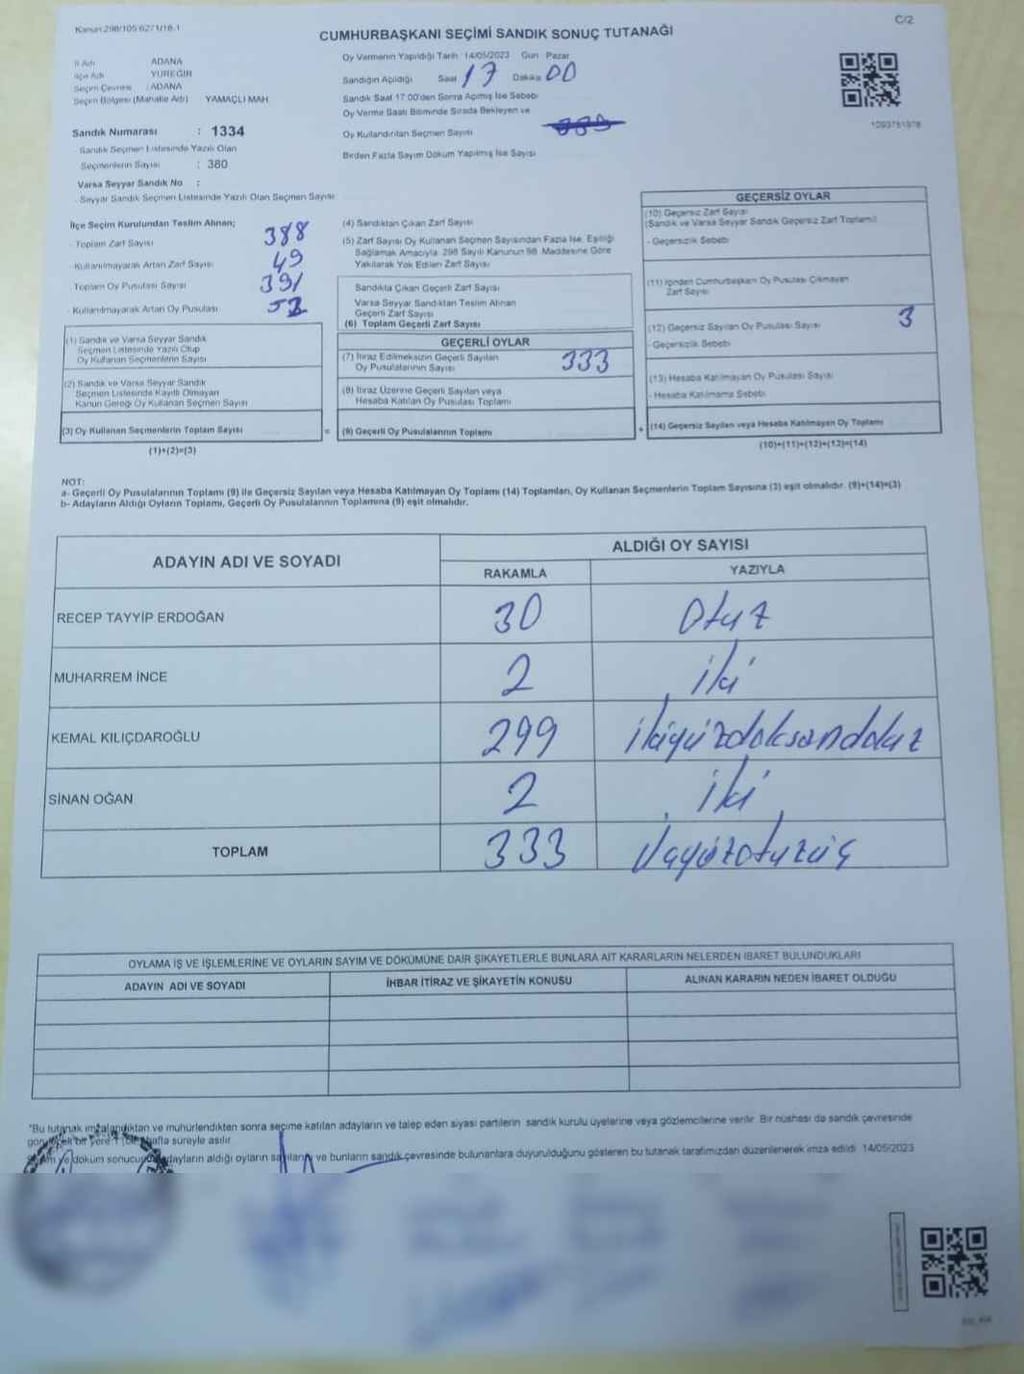 Kanun:298/105 6271/18.1
C/2
CUMHURBAŞKANI SEÇİMİ SANDIK SONUÇ TUTANAĞI
İl Adı ADANA
İlçe Adı YÜREĞİR
Seçim Çevresi : ADANA
Seçim Bölgesi (Mahalle Adı) YAMAÇLI MAH
Sandık Numarası : 1334
Sandık Seçmen Listesinde Yazılı Olan
Seçmenlerin Sayısı : 380
Varsa Seyyar Sandık No :
- Seyyar Sandık Seçmen Listesinde Yazılı Olan Seçmen Sayısı
Oy Vermenin Yapıldığı Tarih 14/05/2023 Gün Pazar
Sandığın Açıldığı Saat 17 Dakika 00
Sandık Saat 17:00'den Sonra Açılmış İse Sebebi
Oy Verme Saati Bitiminde Sırada Bekleyen ve
Oy Kullandırılan Seçmen Sayısı
Birden Fazla Sayım Döküm Yapılmış İse Sayısı
İlçe Seçim Kurulundan Teslim Alınan;
- Toplam Zarf Sayısı 388
- Kullanılmayarak Artan Zarf Sayısı 49
Toplam Oy Pusulası Sayısı 391
- Kullanılmayarak Artan Oy Pusulası
(1) Sandık ve Varsa Seyyar Sandık
Seçmen Listesinde Yazılı Olup
Oy Kullanan Seçmenlerin Sayısı
(2) Sandık ve Varsa Seyyar Sandık
Seçmen Listesinde Kayıtlı Olmayan
Kanun Gereği Oy Kullanan Seçmen Sayısı
(3) Oy Kullanan Seçmenlerin Toplam Sayısı
(1)+(2)=(3)
(4) Sandıktan Çıkan Zarf Sayısı
(5) Zarf Sayısı Oy Kullanan Seçmen Sayısından Fazla İse, Eşitliği
Sağlamak Amacıyla 298 Sayılı Kanunun 98. Maddesine Göre
Yakılarak Yok Edilen Zarf Sayısı
Sandıkta Çıkan Geçerli Zarf Sayısı
Varsa Seyyar Sandıktan Teslim Alınan
Geçerli Zarf Sayısı
(6) Toplam Geçerli Zarf Sayısı
GEÇERLİ OYLAR
(7) İtiraz Edilmeksizin Geçerli Sayılan
Oy Pusulalarının Sayısı 333
(8) İtiraz Üzerine Geçerli Sayılan veya
Hesaba Katılan Oy Pusulası Toplamı
= (9) Geçerli Oy Pusulalarının Toplamı
GEÇERSİZ OYLAR
(10) Geçersiz Zarf Sayısı
(Sandık ve Varsa Seyyar Sandık Geçersiz Zarf Toplamı)
- Geçersizlik Sebebi
(11) İçinden Cumhurbaşkanı Oy Pusulası Çıkmayan
Zarf Sayısı
(12) Geçersiz Sayılan Oy Pusulası Sayısı 3
- Geçersizlik Sebebi
(13) Hesaba Katılmayan Oy Pusulası Sayısı
- Hesaba Katılmama Sebebi
+ (14) Geçersiz Sayılan veya Hesaba Katılmayan Oy Toplamı
(10)+(11)+(12)+(13)=(14)
NOT:
a- Geçerli Oy Pusulalarının Toplamı (9) ile Geçersiz Sayılan veya Hesaba Katılmayan Oy Toplamı (14) Toplamları, Oy Kullanan Seçmenlerin Toplam Sayısına (3) eşit olmalıdır. (9)+(14)=(3)
b- Adayların Aldığı Oyların Toplamı, Geçerli Oy Pusulalarının Toplamına (9) eşit olmalıdır.
ADAYIN ADI VE SOYADI ALDIĞI OY SAYISI
RAKAMLA YAZIYLA
RECEP TAYYİP ERDOĞAN 30 Otuz
MUHARREM İNCE 2 iki
KEMAL KILIÇDAROĞLU 299 ikiyüzdoksandokuz
SİNAN OĞAN 2 iki
TOPLAM 333 Üçyüzotuzüç
OYLAMA İŞ VE İŞLEMLERİNE VE OYLARIN SAYIM VE DÖKÜMÜNE DAİR ŞİKAYETLERLE BUNLARA AİT KARARLARIN NELERDEN İBARET BULUNDUKLARI
ADAYIN ADI VE SOYADI İHBAR İTİRAZ VE ŞİKAYETİN KONUSU ALINAN KARARIN NEDEN İBARET OLDUĞU
"Bu tutanak imzalandıktan ve mühürlendikten sonra seçime katılan adayların ve talep eden siyasi partilerin sandık kurulu üyelerine veya gözlemcilerine verilir. Bir nüshası da sandık çevresinde
bir yere 1 hafta süreyle asılır
ve döküm sonucu adayların aldığı oyların ve bunların sandık çevresinde bulunanlara duyurulduğunu gösteren bu tutanak tarafımızdan düzenlenerek imza edildi 14/05/2023